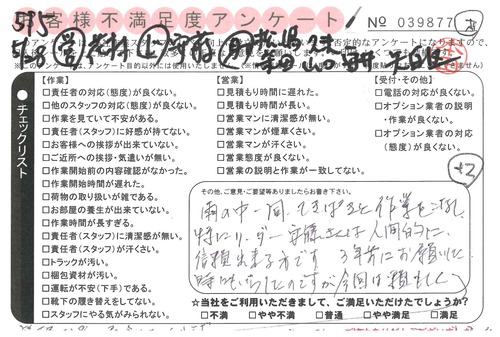 お客様不満足度アンケート
No 039877
チェックリスト
【作業】
□責任者の対応(態度)が良くない。
□他のスタッフの対応(態度)が良くない。
□作業を見ていて不安がある。
□責任者(スタッフ)に好感が持てない。
□お客様への挨拶が出来ていない。
□ご近所への挨拶・気遣いが無い。
□作業開始前の内容確認がなかった。
□作業開始時間が遅れた。
□荷物の取り扱いが雑である。
□お部屋の養生が出来ていない。
□作業時間が長すぎる。
□責任者(スタッフ)に清潔感が無い。
□責任者(スタッフ)が汗くさい。
□トラックが汚い。
□梱包資材が汚い。
□運転が不安(下手)である。
□靴下の履き替えをしてない。
□スタッフにやる気がみられない。
【営業】
□見積もり時間に遅れた。
□見積もり時間が長い。
□営業マンに清潔感が無い。
□営業マンが煙草くさい。
□営業マンが汗くさい。
□営業態度が良くない。
□営業の説明と作業が一致してない。
【受付・その他】
□電話の対応が良くない。
□オプション業者の説明
・作業が良くない。
□オプション業者の対応
(態度)が良くない。
その他、ご意見・ご要望等ありましたらお書き下さい。
雨の中一同、てきぱきと作業をこなし、
特にリーダー安藤さんは人間的に、
信頼出来る方です 3年前にお願いした
時にも
今回は
☆当社をご利用いただきまして、ご満足いただけたでしょうか?
□不満 □やや不満 □普通 □やや満足 □満足